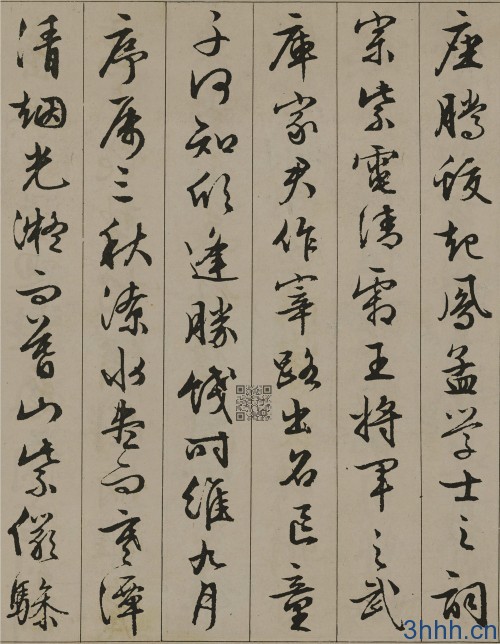 座騰蛟起鳳孟學士之詞
宗紫電清霜王將軍之武
庫家君作宰路出名區童
子何知欣逢勝餞时維九月
序属三秋潦水盡而寒潭
清烟光凝而暮山紫儼驂
3hhh.cn